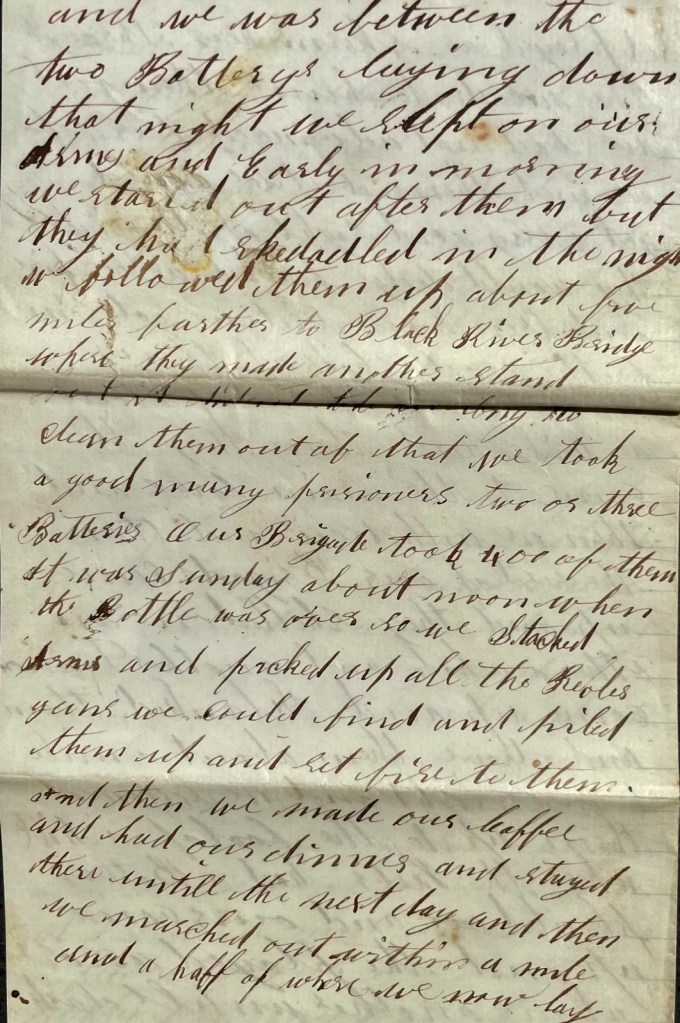 and we was between the
two Batterys laying down
that night we slept on our
Arms and Early in morning
we started out after them but
they had skedadled in the nigh
we followed them up about five
miles farther to Black River Bridge
where they made another stand
long to
clean them out of that we took
a good many prisioners two or three
Batteries Our Brigade took 400 of them
It was Sunday about noon when
the Battle was over so we Stacked
Arms and picked up all the Rebles
guns we could find and piled
them up and set fire to them.
and then we made our Coffee
and had our dinner and stayed
there untill the nest day and then
we marched out within a mile
and a haff of where we now lay